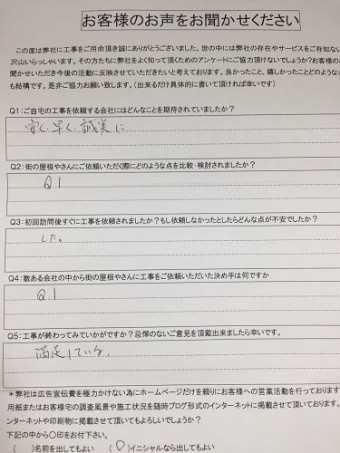 お客様のお声をお聞かせください
この度は弊社に工事をご用命頂き誠にありがとうございました。世の中には弊社の存在やサービスをご存知ない
沢山いらっしゃいます。その方たちに弊社をよく知って頂くためのアンケートにご協力頂けないでしょうか?お客様の
聞かせいただき今後の活動に反映させていただきたいと考えております。良かったこと、嬉しかったことどのような
も結構です。是非ご協力お願い致します。(出来るだけ具体的に書いて頂ければ幸いです)
Q1:ご自宅の工事を依頼する会社にはどんなことを期待されていましたか?
安く、早く、誠実に
Q2:街の屋根やさんにご依頼いただく際にどのような点を比較・検討されましたか?
Q.1
Q3:初回訪問後すぐに工事を依頼されましたか?もし依頼しなかったとしたらどんな点が不安でしたか?
した。
Q4:数ある会社の中から街の屋根やさんに工事をご依頼いただいた決め手は何ですか
Q.1
Q5:工事が終わってみていかがですか?忌憚のないご意見を頂戴出来ましたら幸いです。
満足している。
*弊社は広告宣伝費を極力かけない為にホームページだけを頼りにお客様への営業活動を行っております
用紙またはお客様宅の調査風景や施工状況を随時ブログ形式のインターネットに掲載させて頂いております。
ンターネットや印刷物に掲載させて頂いてもよろしいでしょうか?
下記の中から〇印をお付下さい。
( )名前を出してもよい (〇)イニシャルなら出してもよい